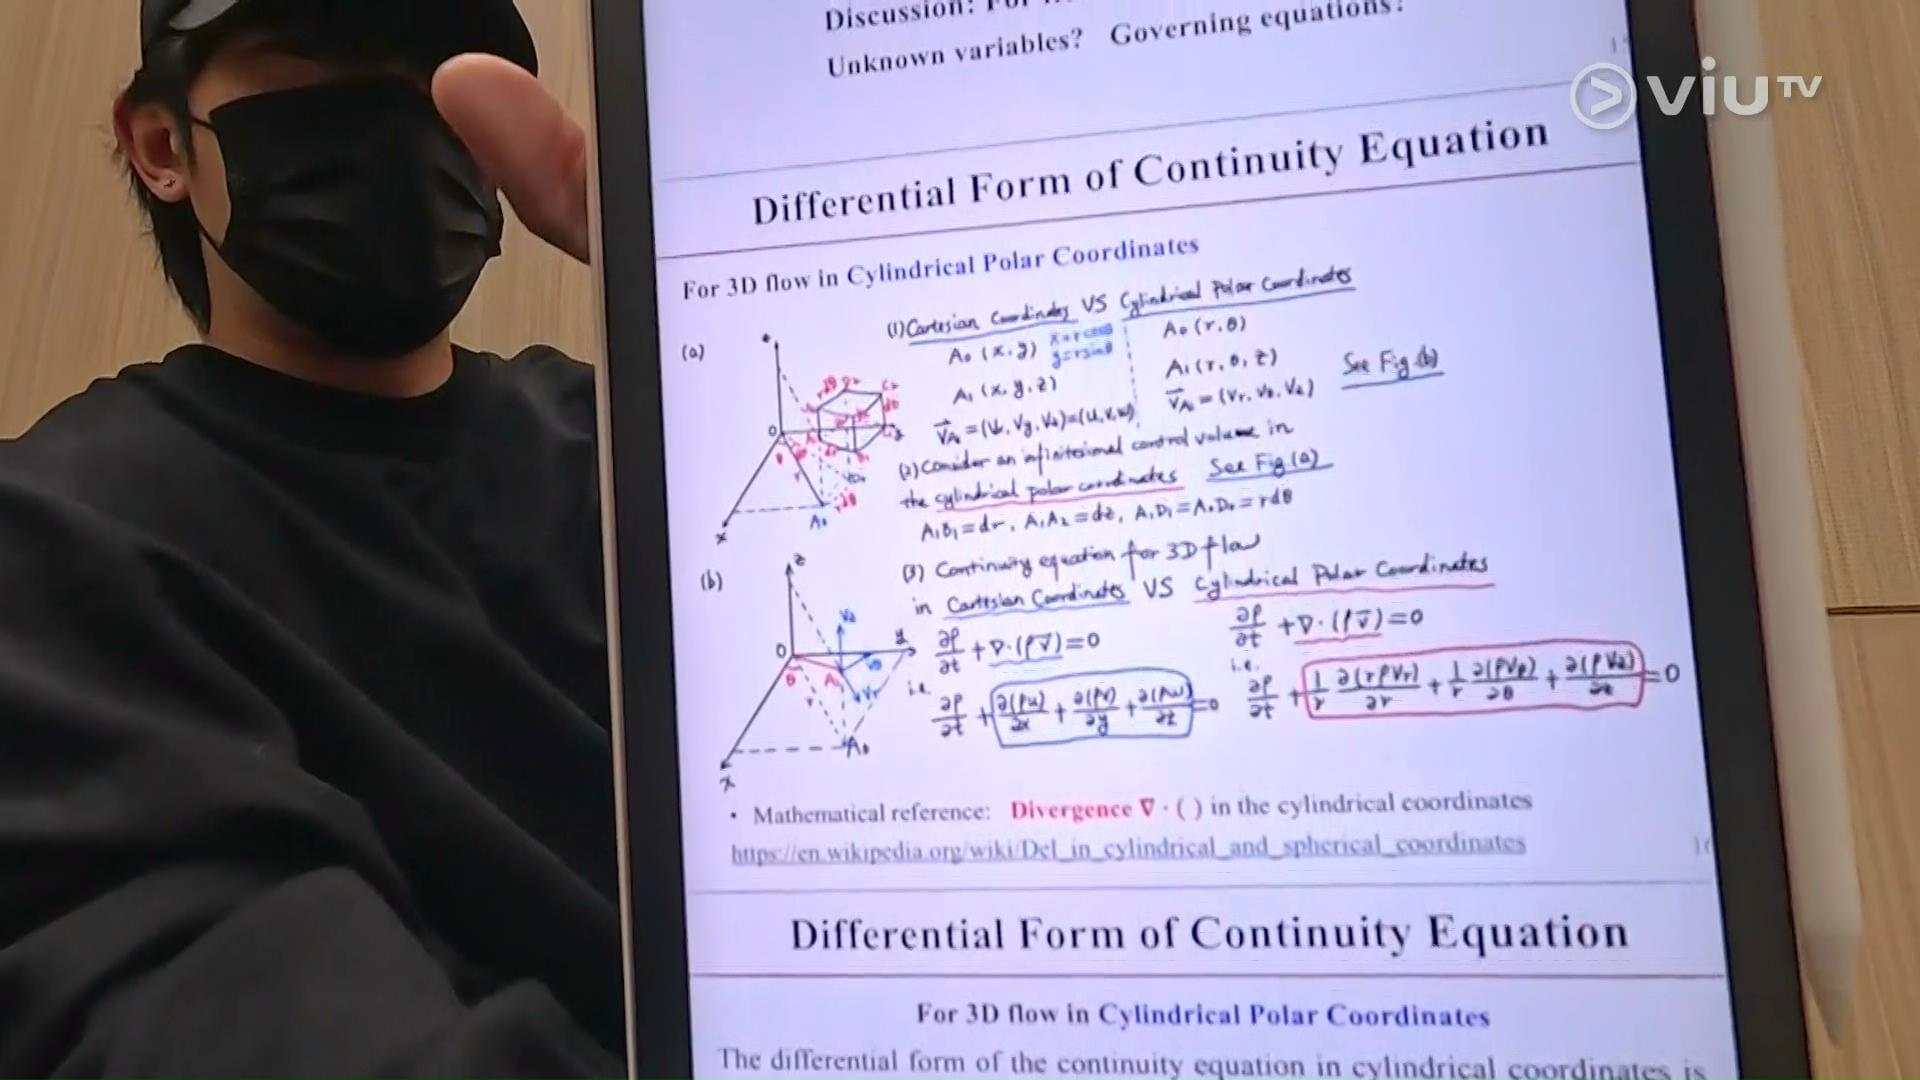 Discussion: For
Unknown variables? Governing equations?
VIUTV
Differential Form of Continuity Equation
For 3D flow in Cylindrical Polar Coordinates
(1) Cartesian Coordinates VS Cylindrical Polar Coordinates
(a)
A₀ (x, y) x=rcosθ y=rsinθ A₀ (r, θ)
A₁ (x, y, z) A₁ (r, θ, z) See Fig (b)
V⃗A₁ = (Vx, Vy, Vz)=(u, v, w) V⃗A₁ = (Vr, Vθ, Vz)
(2) Consider an infinitesimal control volume in
the cylindrical polar coordinates See Fig (a)
A₁B₁=dr, A₁A₂=dz, A₁D₁=A₀D₀=rdθ
(3) Continuity equation for 3D flow
(b)
in Cartesian Coordinates VS Cylindrical Polar Coordinates
∂ρ/∂t + ∇·(ρv⃗)=0 ∂ρ/∂t + ∇·(ρv⃗)=0
i.e. i.e.
∂ρ/∂t + ∂(ρu)/∂x + ∂(ρv)/∂y + ∂(ρw)/∂z =0 ∂ρ/∂t + 1/r ∂(rρVr)/∂r + 1/r ∂(ρVθ)/∂θ + ∂(ρVz)/∂z =0
• Mathematical reference: Divergence ∇ · ( ) in the cylindrical coordinates
https://en.wikipedia.org/wiki/Del_in_cylindrical_and_spherical_coordinates
Differential Form of Continuity Equation
For 3D flow in Cylindrical Polar Coordinates
The differential form of the continuity equation in cylindrical coordinates is